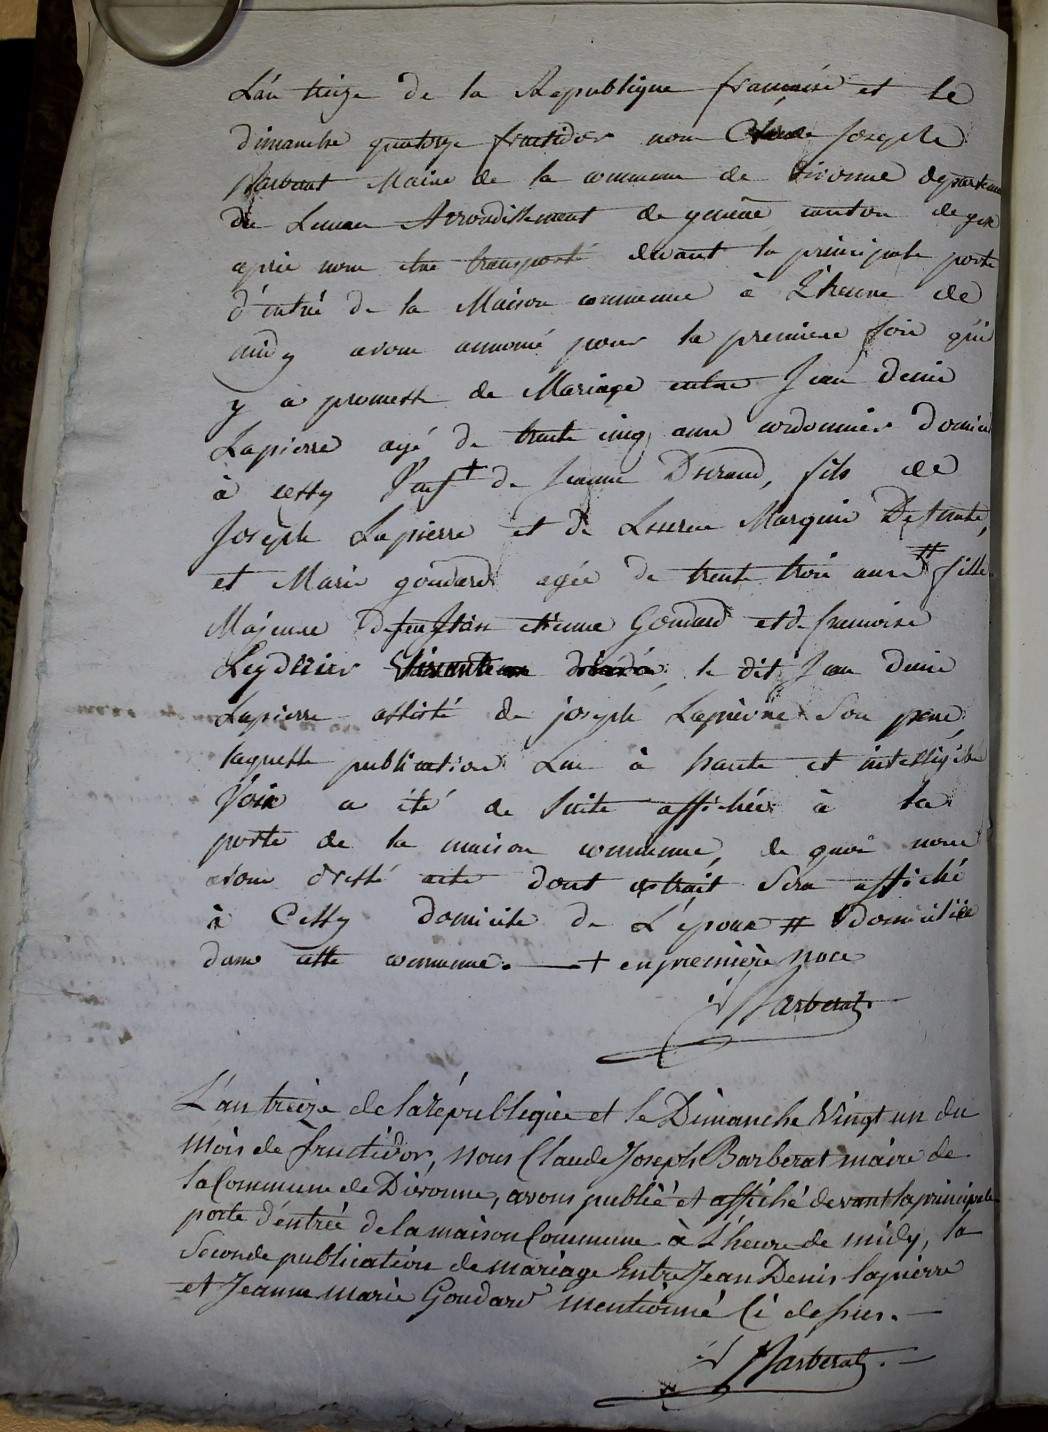 L'an treize de la Republique francaise et le
dimanche quatorze fructidor nous Claude Joseph
Barberat Maire de la commune de Divonne departem
du Leman Arrondissement de geneve canton de gex
aprés nous etre transporté devant la principale porte
d'entré de la Maison commune à L'heure de
midy avons annoncé pour la premiere fois qu'il
y a promesse de Mariage entre Jean denis
Lapierre agé de trente cinq ans cordonnier domicil
à cessy Veuf + de Jeanne Durand, fils de
Joseph Lapierre et de Marquis Defunte,
et Marie goudard agée de trente trois ans # fille
Majeure de feu etienne Goudard et de francoise
le dit Jean denis
Lapierre assisté de joseph Lapierre Son pere,
laquelle publication Lue à haute et intelligible
Voix a été de Suite affichée à la
porte de la maison commune, de quoi nous
avons dressé acte dont extrait Sera affiché
à Cessy domicile de L'époux # domiciliée
dans cette commune. — + en première noce
Barberat
L'an treize de la république et le Dimanche Vingt un du
mois de fructidor, nous Claude Joseph Barberat maire de
la Commune de Divonne, avons publié et affiché devant la principale
porte d'entrée de la maison Commune à L'heure de midy, la
Seconde publication de mariage Entre Jean Denis lapierre
et Jeanne marie Goudard mentionné Ci dessus. —
Barberat